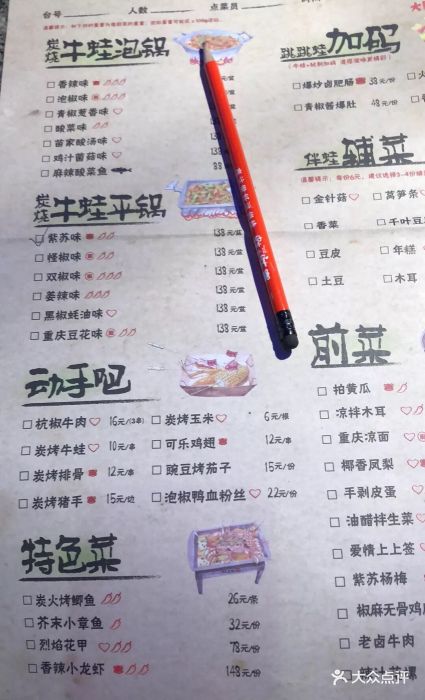 台号 人数 点菜员
炭烧牛蛙泡锅
□ 香辣味
□ 泡椒味
□ 青椒葱香味
□ 酸菜味
□ 苗家酸汤味
□ 鸡汁菌菇味
□ 麻辣酸菜鱼
炭烧牛蛙平锅
□ 紫苏味 138元/盆
□ 怪椒味 138元/盆
□ 双椒味 138元/盆
□ 姜辣味 138元/盆
□ 黑椒蚝油味 138元/盆
□ 重庆豆花味 138元/盆
动手吧
□ 杭椒牛肉 16元/(3串)
□ 炭烤牛蛙 10元/串
□ 炭烤排骨 12元/串
□ 炭烤猪手 15元/边
□ 炭烤玉米 6元/根
□ 可乐鸡翅 12元/串
□ 豌豆烤茄子 15元/份
□ 泡椒鸭血粉丝 22元/份
特色菜
□ 炭火烤鲫鱼 26元/条
□ 芥末小章鱼 32元/份
□ 烈焰花甲 78元/份
□ 香辣小龙虾 148元/份
跳跳蛙加码
□ 爆炒卤肥肠 38元/份
□ 青椒酱爆肚 48元/份
伴蛙辅菜
□ 金针菇 □ 莴笋条
□ 香菜 □ 千叶豆
□ 豆皮 □ 年糕
□ 土豆 □ 木耳
前菜
□ 拍黄瓜
□ 凉拌木耳
□ 重庆凉面
□ 椰香凤梨
□ 手剥皮蛋
□ 油醋拌生菜
□ 爱情上上签
□ 紫苏杨梅
□ 椒麻无骨鸡
□ 老卤牛肉
大众点评